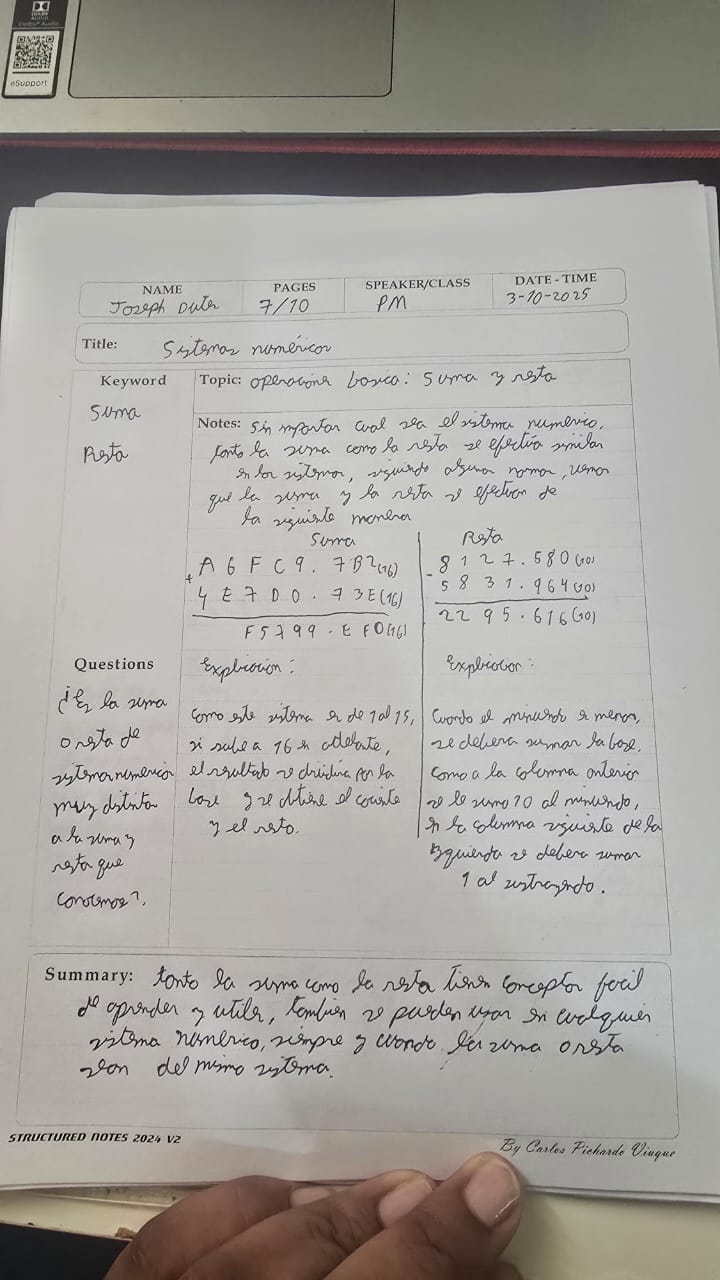 DOLBY AUDIO
Dolby® Audio
eSupport
NAME
PAGES
SPEAKER/CLASS
DATE - TIME
Joseph
7/10
PM
3-10-2025
Title: Sistemas numéricos
Keyword
Topic: operaciones basica: Suma y resta
Suma
Resta
Notes: Sin importar cual sea el sistema numerico,
tanto la suma como la resta se efectúa similar
en los sistemas, siguiendo algunas normas, vemos
que la suma y la resta se efectuan de
la siguiente manera
Suma
A 6 F C 9 . 7 B 2 (16)
+ 4 E 7 D 0 . 7 3 E (16)
F 5 7 9 9 . E F 0 (16)
Resta
8 1 2 7 . 5 8 0 (10)
- 5 8 3 1 . 9 6 4 (10)
2 2 9 5 . 6 1 6 (10)
Questions
¿Es la suma
o resta de
sistemas numericos
muy distinta
a la suma y
resta que
conocemos?.
Explicacion:
Como este sistema es de 1 al 15,
si sube a 16 en adelante,
el resultado se dividira por la
base y se obtiene el cociente
y el resto.
Explicacion:
Cuando el minuendo es menor,
se debera sumar la base,
como a la columna anterior
se le sumo 10 al minuendo,
en la columna siguiente de la
izquierda se debera sumar
1 al sustraendo.
Summary: tanto la suma como la resta tienen conceptos facil
de aprender y utiles, tambien se pueden usar en cualquier
sistema numerico, siempre y cuando la suma o resta
sean del mismo sistema.
STRUCTURED NOTES 2024 V2
By Carlos Pichardo Viuque